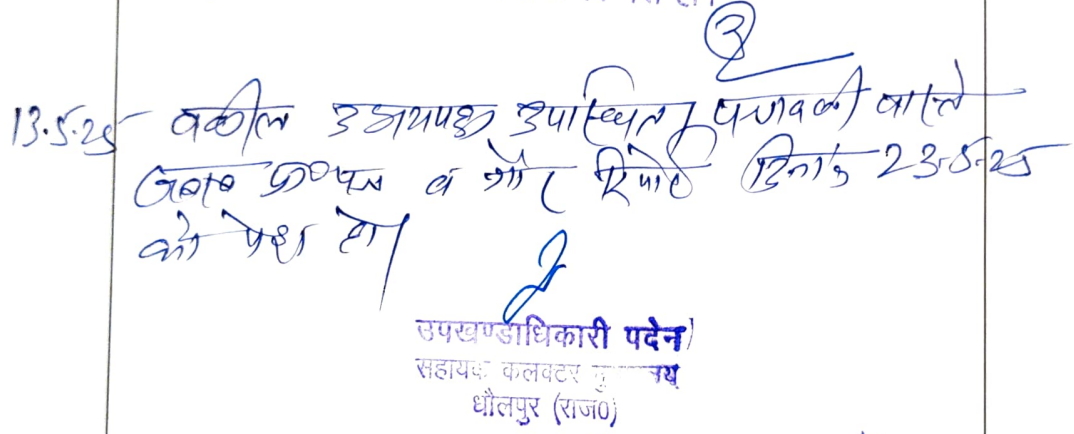 13.5.25 वकील उभयपक्ष उपस्थित। पत्रावली वास्ते
जबाब प्रा०पत्र व मौ रिपोर्ट दिनांक 23.5.25
को पेश हो।
उपखण्डाधिकारी पदेन
सहायक कलक्टर
धौलपुर (राज०)